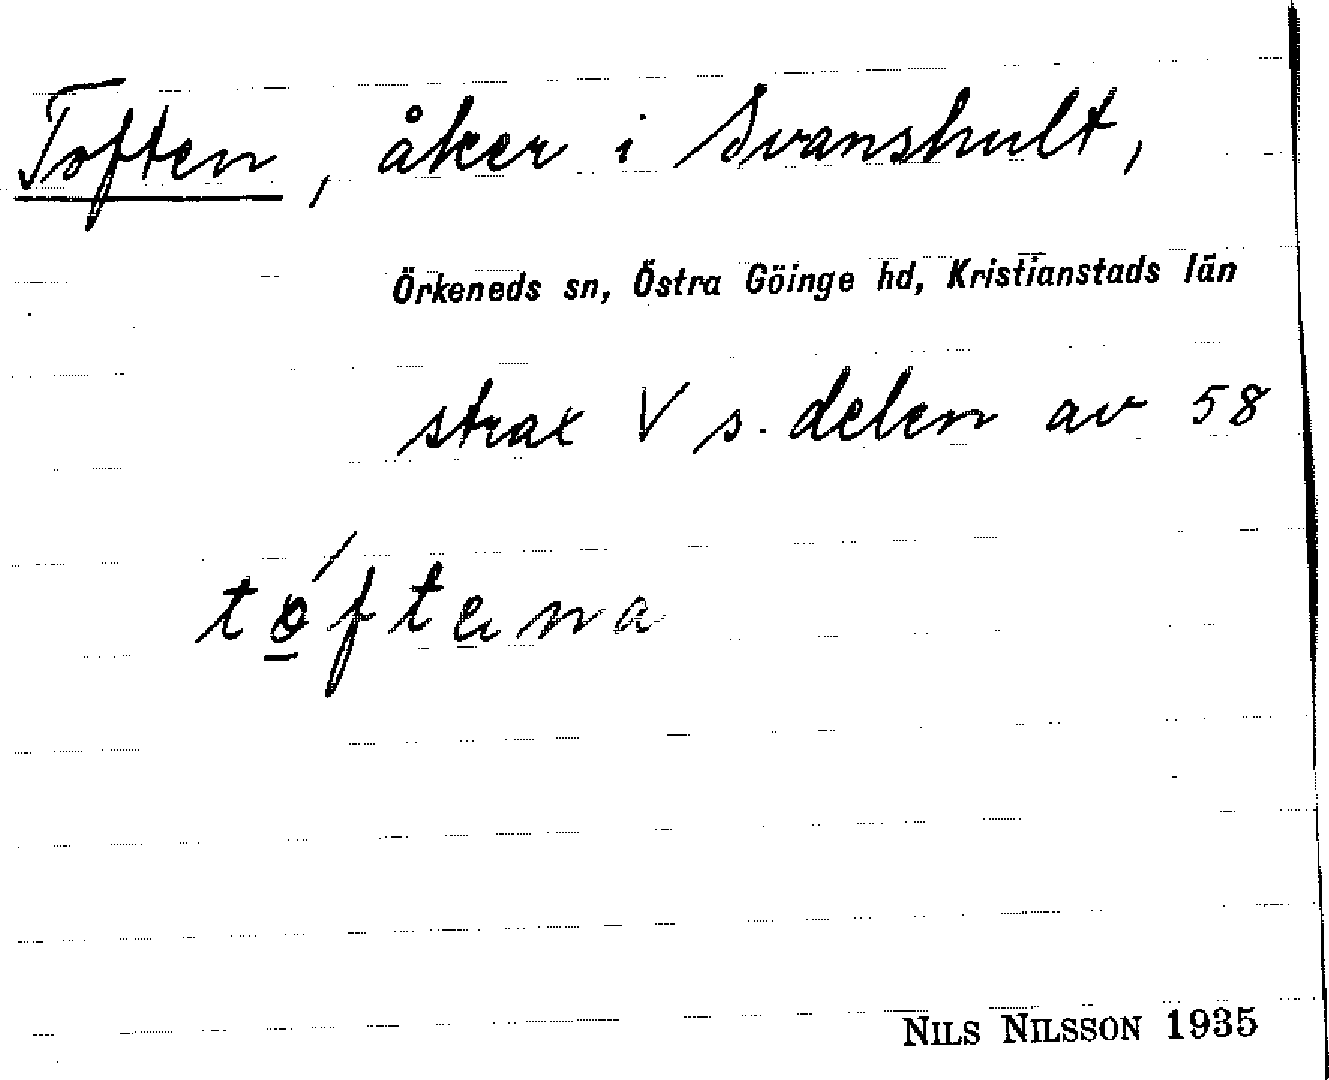 Toften, åker i Svanshult,
Örkeneds sn, Östra Göinge hd, Kristianstads län
strax V s. delen av 58
NILS NILSSON 1935